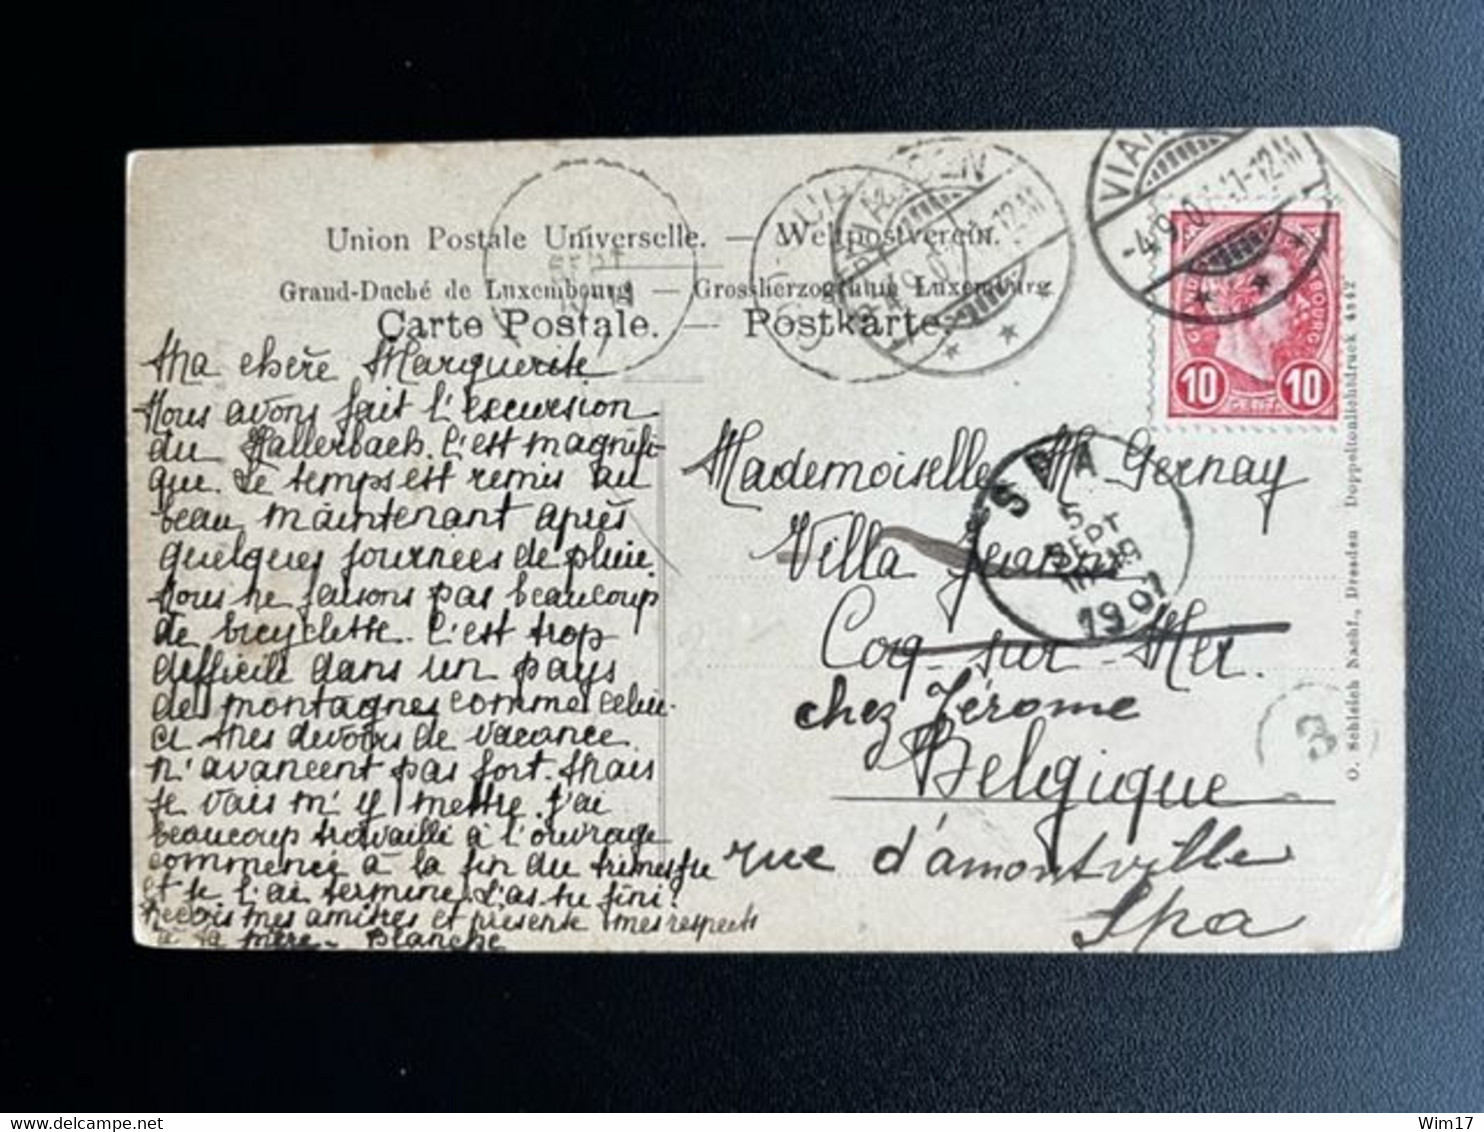 Union Postale Universelle. — Weltpostverein.
Grand-Duché de Luxembourg — Grossherzogthum Luxemburg
Carte Postale. — Postkarte.
VIANDEN
-4.9.07.11-12M
10 10
Ma chère Marguerite
Nous avons fait l'excursion
du Hallerbach. C'est magnifi-
que. Le temps est remis au
beau maintenant après
quelques journées de pluie.
Nous ne faisons pas beaucoup
de bicyclette. C'est trop
difficile dans un pays
de montagnes comme celui-
ci. Mes devoirs de vacance
n'avancent pas fort. Mais
je vais m'y mettre. J'ai
beaucoup travaillé à l'ouvrage
commencé à la fin du trimestre
et je l'ai terminé. L'as tu fini?
Reçois mes amitiés et présente mes respects
à ta mère. Blanche
Mademoiselle M Gernay
Villa
Coq-sur-Mer.
chez Jérome
Belgique
rue d'amontville
Spa
SPA
5
SEPT
1907
3
O. Schleich Nachf., Dresden Doppeltonlichtdruck 4442
Wim17